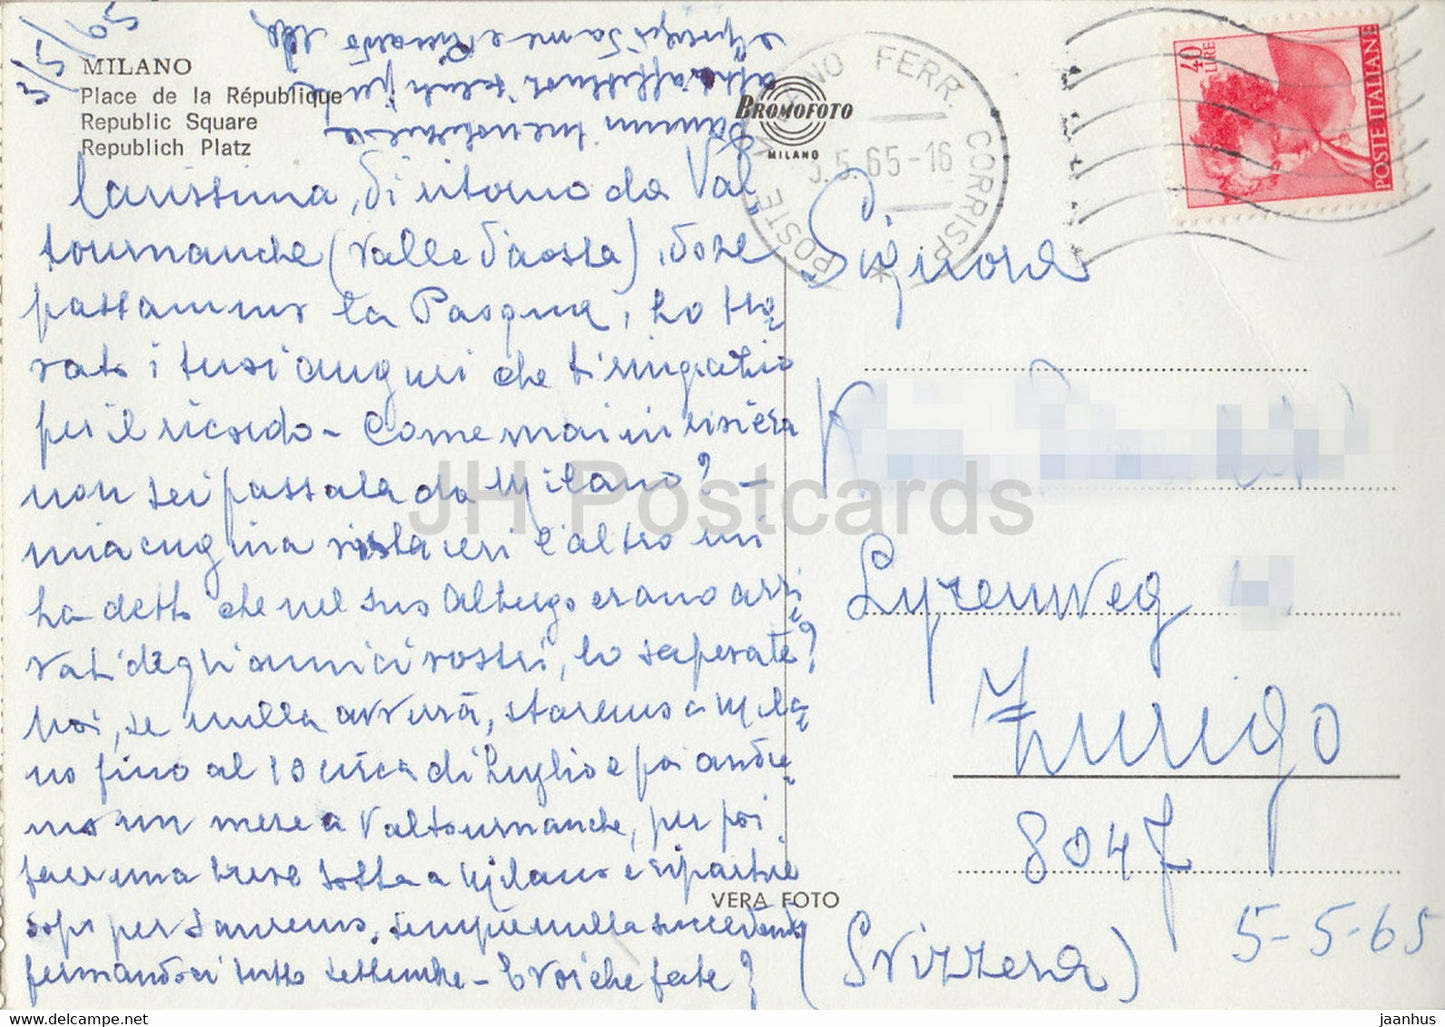 5/5/65
MILANO
Place de la République
Republic Square
Republich Platz
BROMOFOTO
MILANO
POSTE MILANO FERR. CORRISP.
5.5.65-16
40
LIRE
POSTE ITALIANE
Carissima, di ritorno da Val-
tournanche (valle d'aosta), dove
passammo la Pasqua, ho tro-
vato i tuoi auguri che ti ringrazio
per il ricordo - Come mai in riviera
non sei passata da Milano? -
mia cugina vista ieri l'altro mi
ha detto che nel suo Albergo erano arri-
vati degli amici vostri, lo sapevate?
noi, se nulla avverrà, staremo a Mila-
no fino al 10 circa di Luglio e poi andre-
mo un mese a Valtournanche, per poi
fare una breve sosta a Milano e ripartire
dopo per Sanremo, sempre nulla succedendo
fermandoci tutto settembre - E voi che fate?
affettuosi saluti
e Riccardo
Signora
Lyrenweg
Zurigo
8047
(Svizzera)
5-5-65
VERA FOTO
JH Postcards
jaanhus